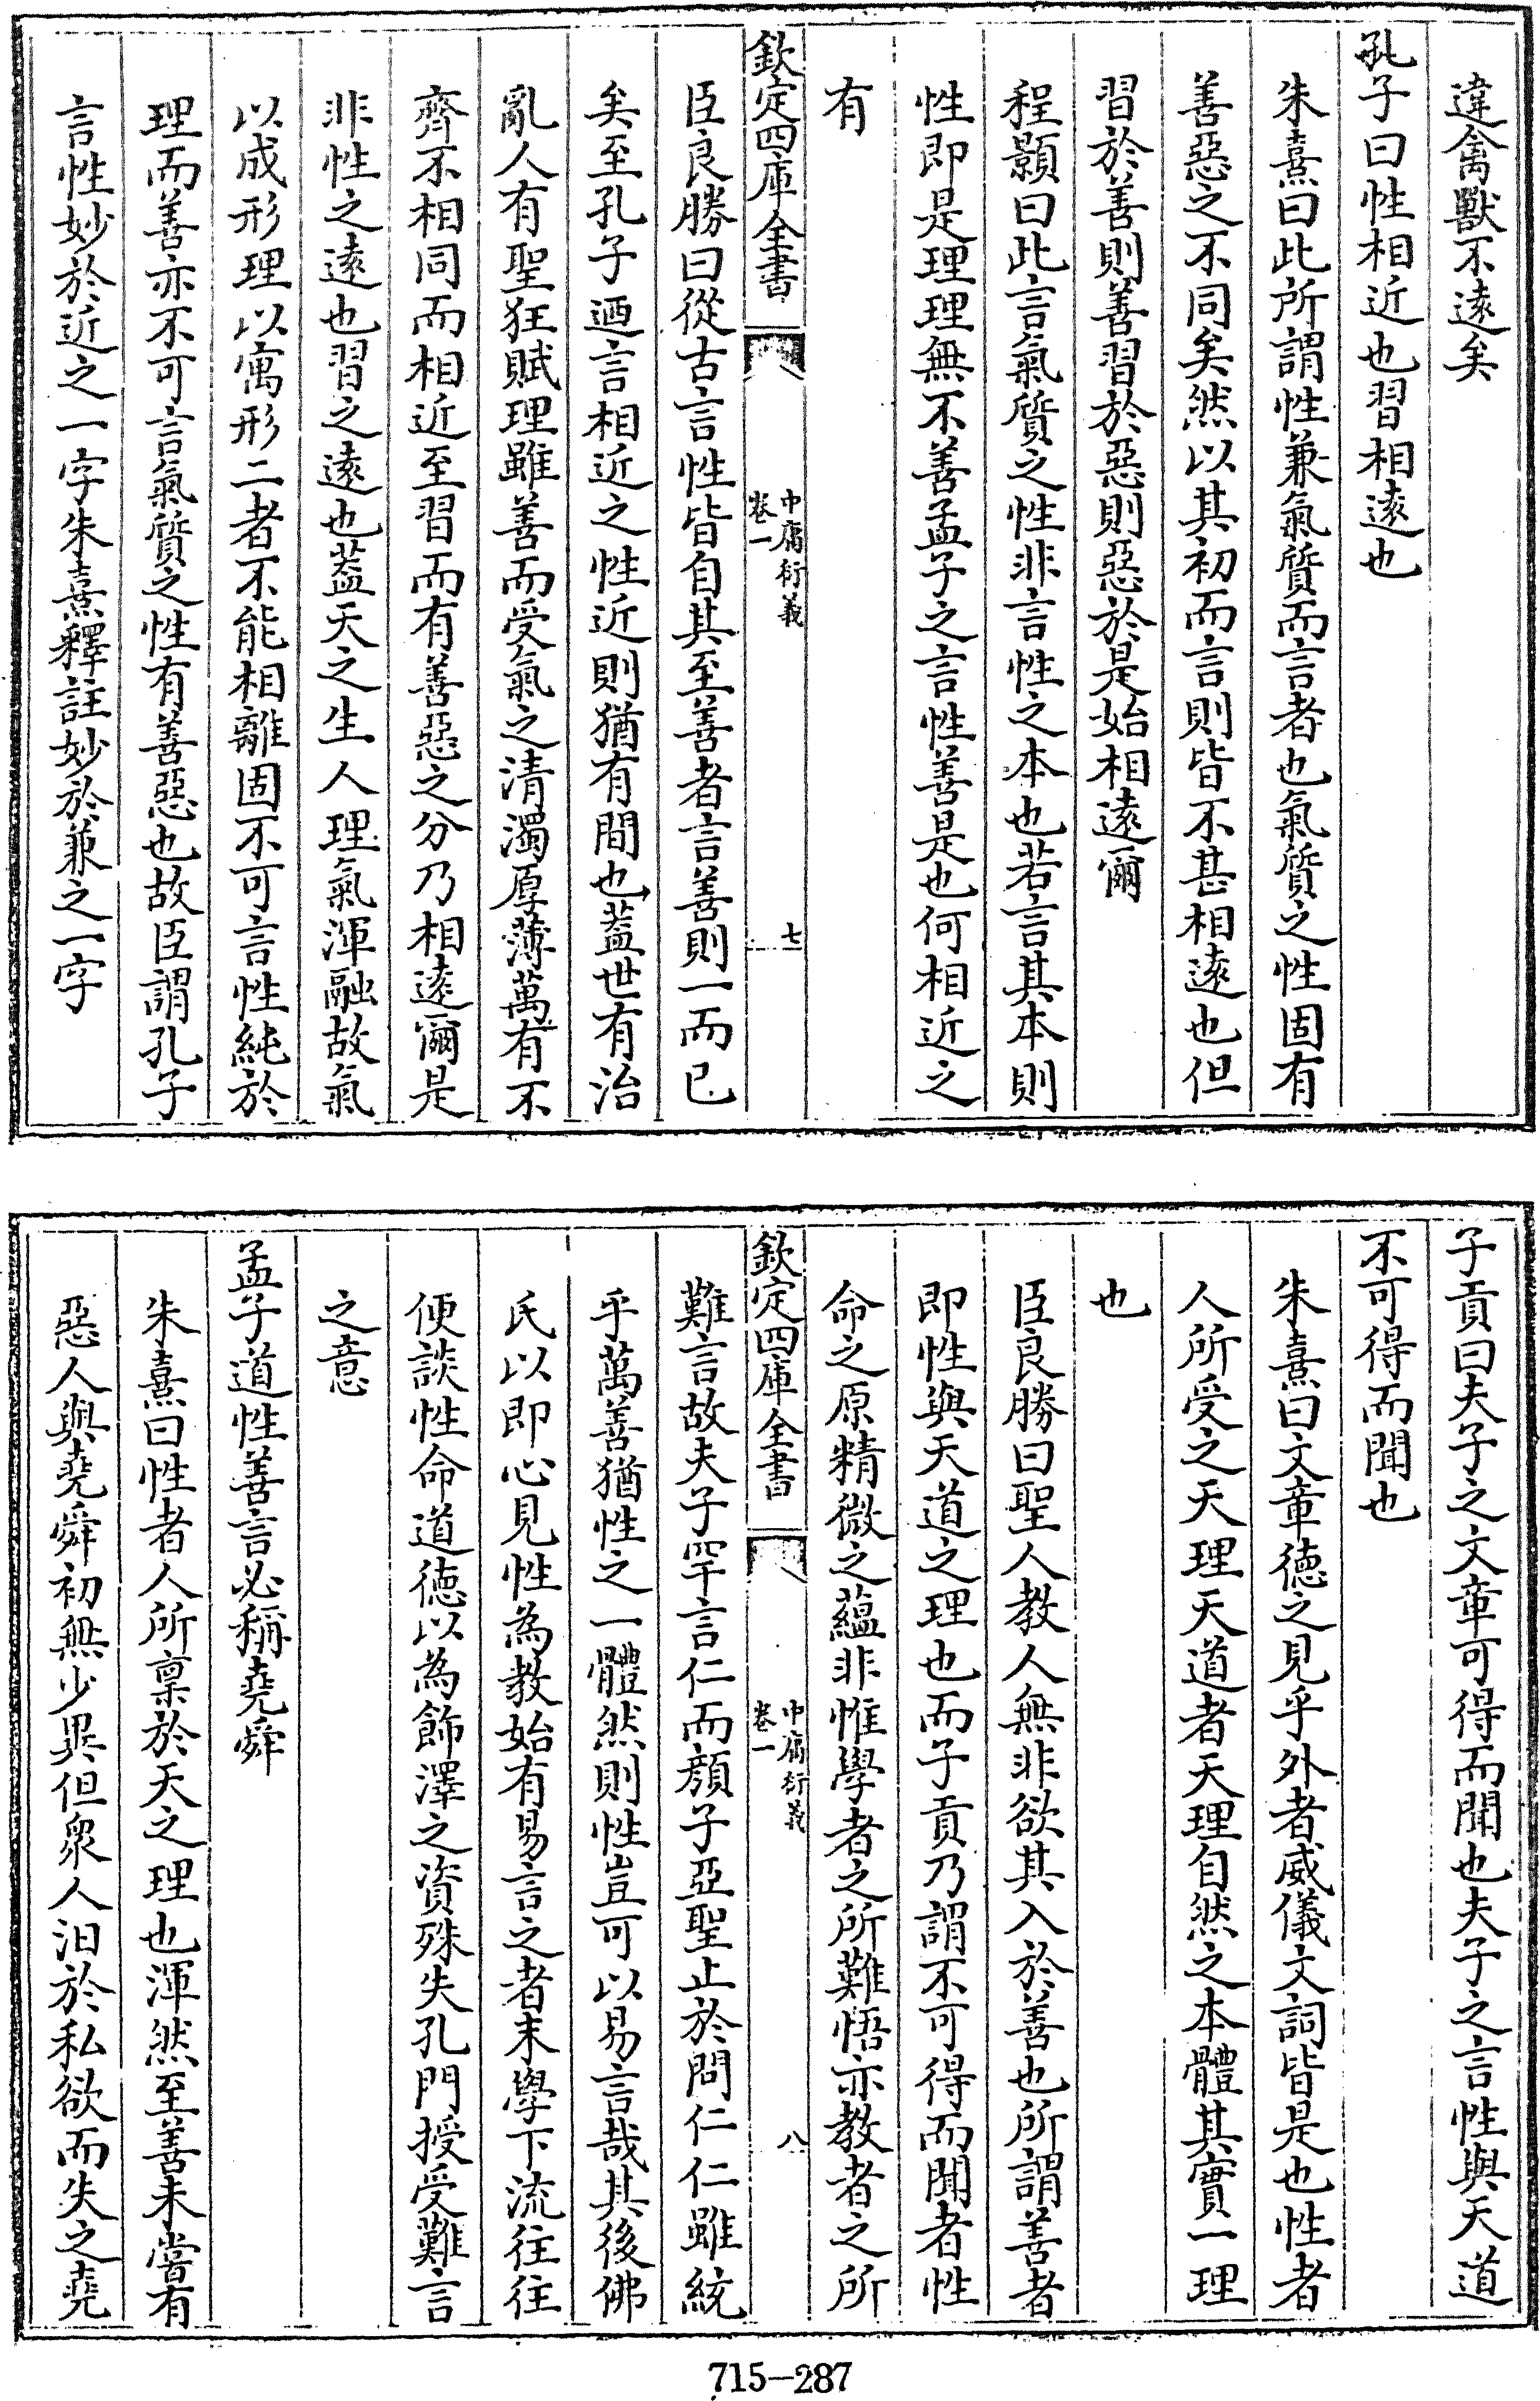 違禽獸不遠矣
孔子曰性相近也習相遠也
朱熹曰此所謂性兼氣質而言者也氣質之性固有
善惡之不同矣然以其初而言則皆不甚相遠也但
習於善則善習於惡則惡於是始相遠爾
程顥曰此言氣質之性非言性之本也若言其本則
性即是理理無不善孟子之言性善是也何相近之
有
欽定四庫全書
中庸衍義
卷一
七
臣良勝曰從古言性皆自其至善者言善則一而已
矣至孔子迺言相近之性近則猶有間也葢世有治
亂人有聖狂賦理雖善而受氣之清濁厚薄萬有不
齊不相同而相近至習而有善惡之分乃相遠爾是
非性之遠也習之遠也葢天之生人理氣渾融故氣
以成形理以寓形二者不能相離固不可言性純於
理而善亦不可言氣質之性有善惡也故臣謂孔子
言性妙於近之一字朱熹釋註妙於兼之一字
子貢曰夫子之文章可得而聞也夫子之言性與天道
不可得而聞也
朱熹曰文章徳之見乎外者威儀文詞皆是也性者
人所受之天理天道者天理自然之本體其實一理
也
臣良勝曰聖人教人無非欲其入於善也所謂善者
即性與天道之理也而子貢乃謂不可得而聞者性
命之原精微之蘊非惟學者之所難悟亦教者之所
欽定四庫全書
中庸衍義
卷一
八
難言故夫子罕言仁而顔子亞聖止於問仁仁雖統
乎萬善猶性之一體然則性豈可以易言哉其後佛
氏以即心見性為教始有易言之者末學下流往往
便談性命道徳以為飾澤之資殊失孔門授受難言
之意
孟子道性善言必稱堯舜
朱熹曰性者人所稟於天之理也渾然至善未嘗有
惡人與堯舜初無少異但衆人汨於私欲而失之堯
715-287